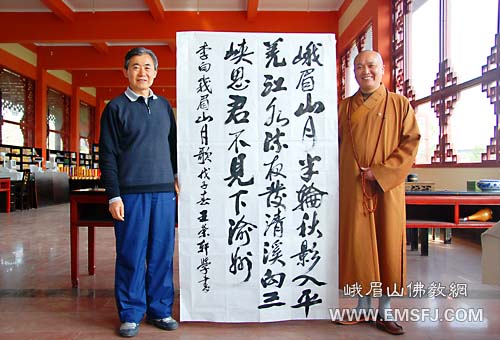 峨眉山月半輪秋影入平
羌江水流夜發清溪向三
峡思君不見下渝州
李白峨眉山月歌 戊子春 王荣轩學書
峨眉山佛教網
WWW.EMSFJ.COM